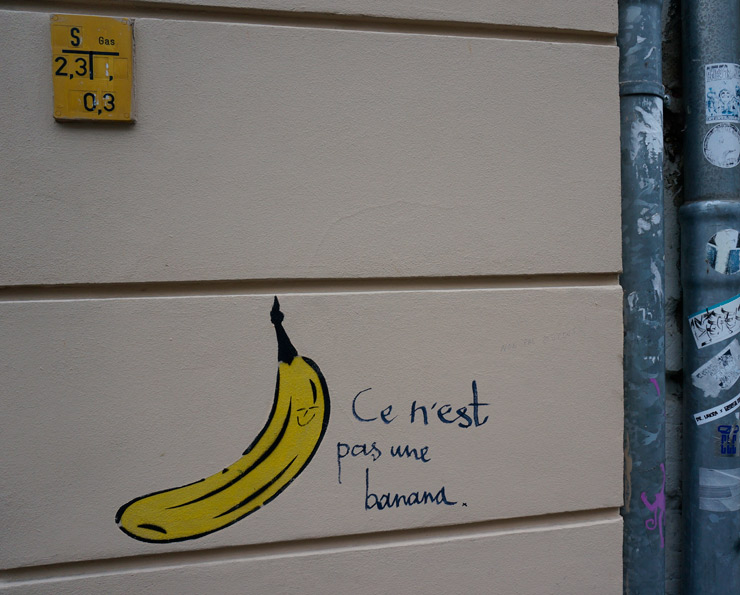 S Gas
2,3 1,
0,3
Ce n'est
pas une
banana.